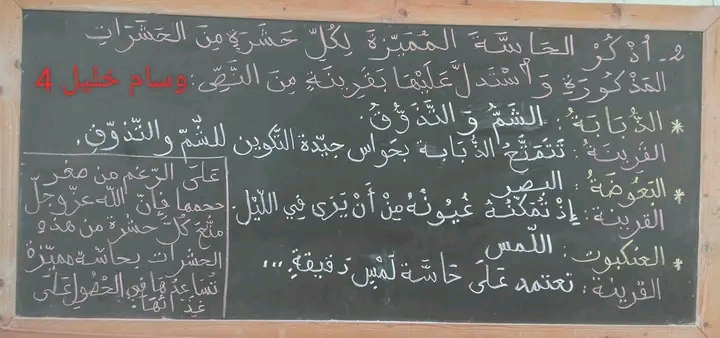 2- اُذْكُرْ الحَاسَّةَ المُمَيِّزَةَ لِكُلِّ حَشَرَةٍ مِنَ الحَشَرَاتِ
المَذْكُورَةِ وَاسْتَدِلَّ عَلَيْهَا بِقَرِينَةٍ مِنَ النَّصِّ. وسام خليل 4
* الذُّبَابَةُ: الشَّمُّ وَ التَّذَوُّقُ.
القَرِينَةُ: تَتَمَتَّعُ الذُّبَابَة بِحَوَاس جَيِّدة التَّكوين للشَّمّ والتَّذوّقِ.
* البَعُوضَةُ: البصر
القَرِينَة: إِذْ تُمَكِّنُهُ عُيُونُهُ مِنْ أَنْ يَرَى فِي اللَّيْلِ.
* العنكبوت: اللَّمس
القَرِينَة: تعتمد عَلَى حَاسَّة لَمْسٍ دَقِيقَةٍ...
عَلَى الرَّغم من صغر
حجمها فإنّ اللّه عزّوجلّ
متّع كلّ حشرة من هذه
الحشرات بحاسّة مميّزة
تُسَاعِدُهَا فِي الحُصُولِ عَلَى
غِذَائِهَا.